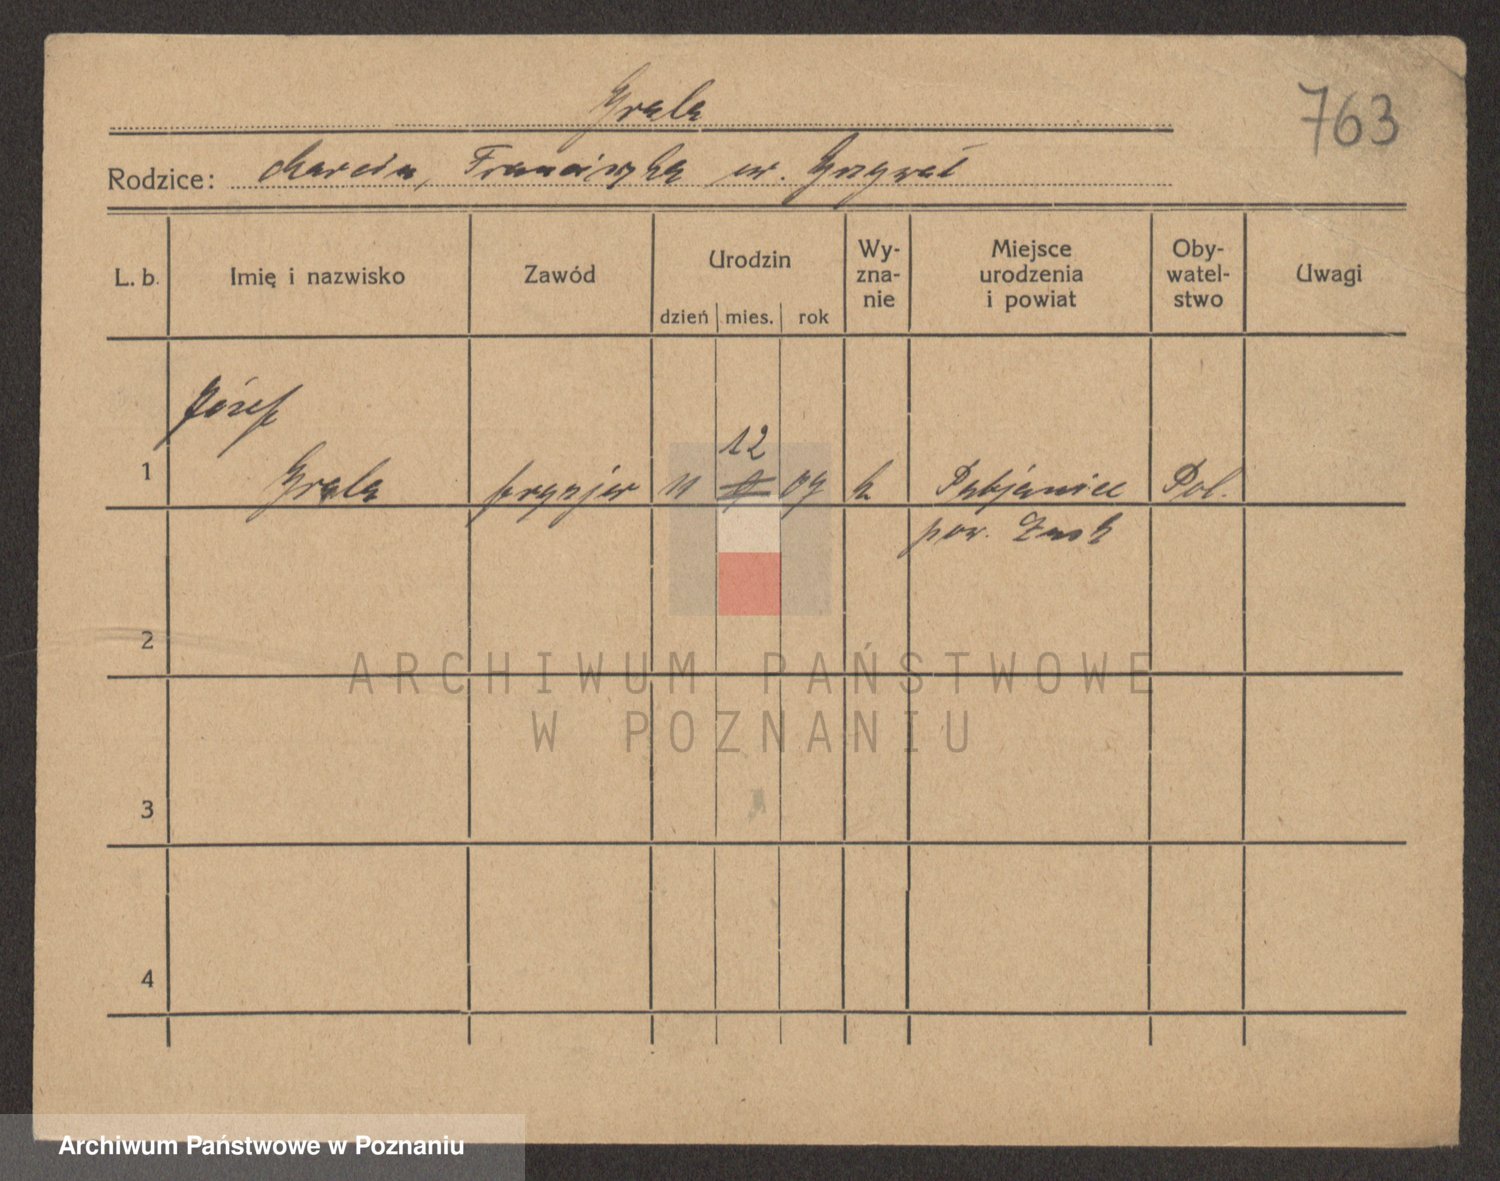 Grala
763
Rodzice: Marcin, Franciszka ur.
L. b. Imię i nazwisko Zawód Urodzin dzień mies. rok Wy-zna-nie Miejsce urodzenia i powiat Oby-watel-stwo Uwagi
Józef
12
1 Grala fryzjer 11 09 k Pabjanice Pol.
pow. Łask
2
3
4
ARCHIWUM PAŃSTWOWE
W POZNANIU
Archiwum Państwowe w Poznaniu